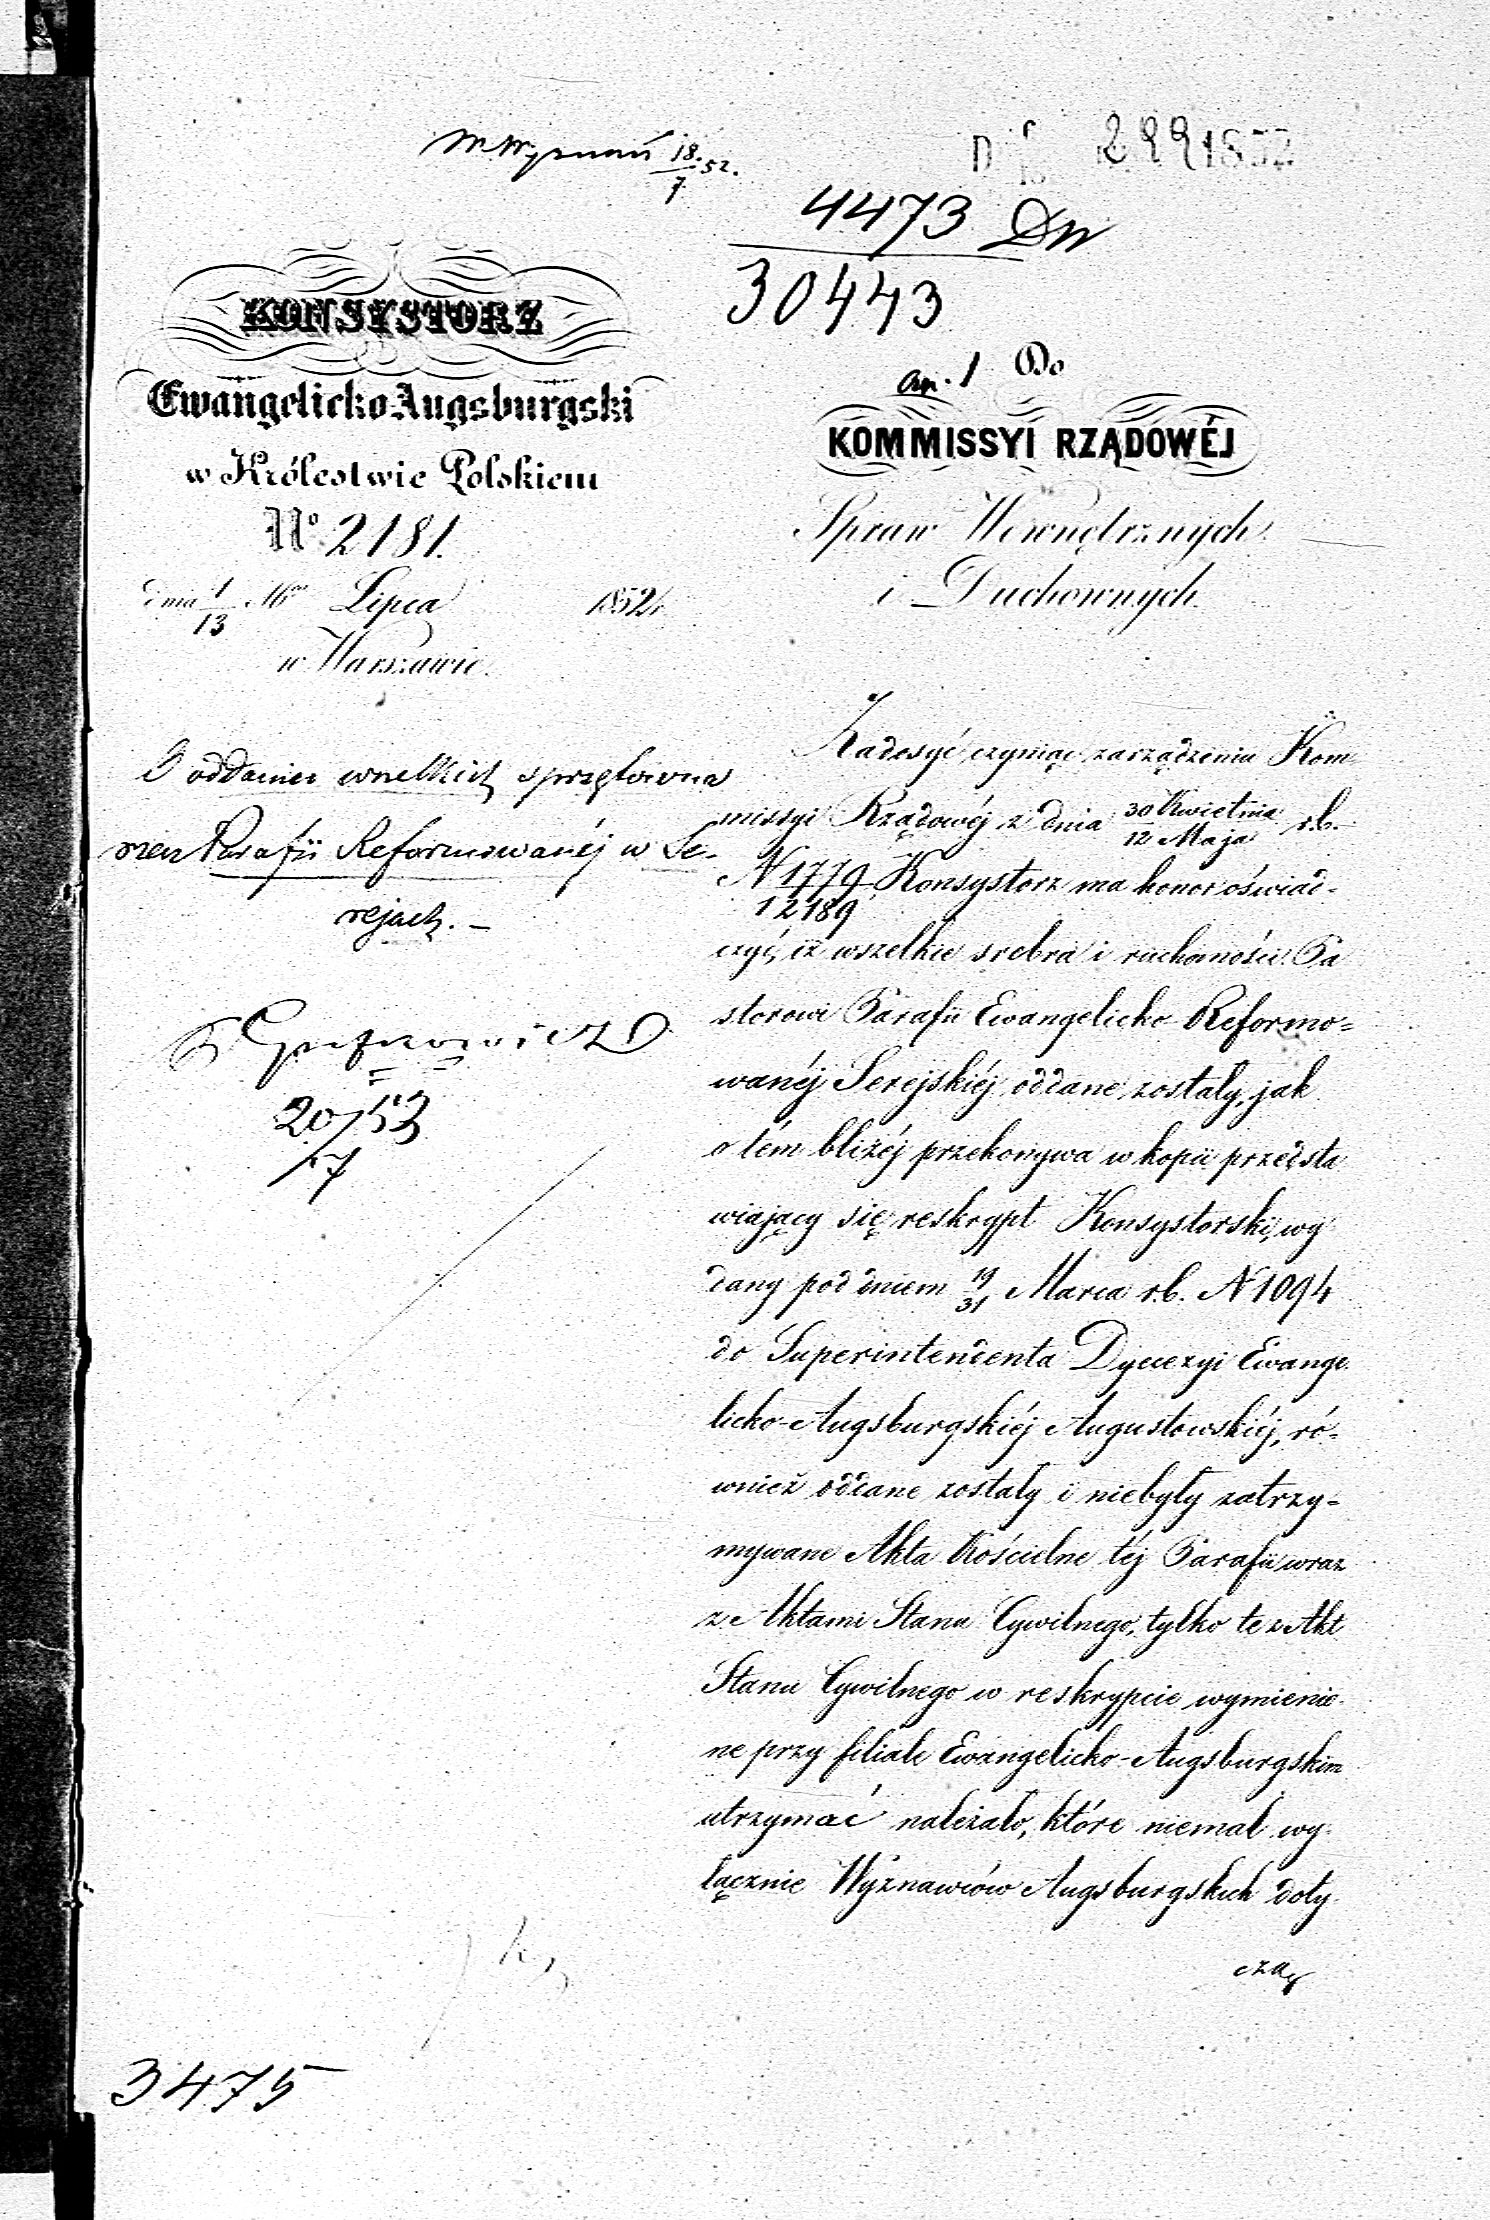 W. Wyznań 18/7 52.
299 1852
4473 DW
30443
KONSYSTORZ
Ewangelicko Augsburgski
w Królestwie Polskiem
No 2181.
dnia 1/13 Mca Lipca 1852 r.
w Warszawie.
an. 1 Do
KOMMISSYI RZĄDOWÉJ
Spraw Wewnętrznych
i Duchownych.
O oddaniu wszelkich sprzętów na
rzecz Parafii Reformowanéj w Se-
rejach. –
20/7 53
3475
Zadosyć czyniąc zarządzeniu Kom
missyi Rządowéj z dnia 30 Kwietnia / 12 Maja r.b.
N 1779/12189 Konsystorz ma honor oświad-
czyć, iż wszelkie srebra i ruchomości Pa
storowi Parafii Ewangelicko Reformo=
wanéj Serejskiéj oddane zostały, jak
o tém bliżéj przekonywa w kopii przedsta
wiający się reskrypt Konsystorski, wy
dany pod dniem 19/31 Marca r.b. N 1094
do Superintendenta Dyecezyi Ewange
licko-Augsburgskiéj Augustowskiéj, ró-
wnież oddane zostały i niebyły zatrzy-
mywane Akta Kościelne téj Parafii wraz
z Aktami Stanu Cywilnego, tylko te z Akt
Stanu Cywilnego w reskrypcie wymienio
ne przy filiale Ewangelicko-Augsburgskim
utrzymać należało, które niemal wy
łącznie Wyznawców Augsburgskich doty
czą